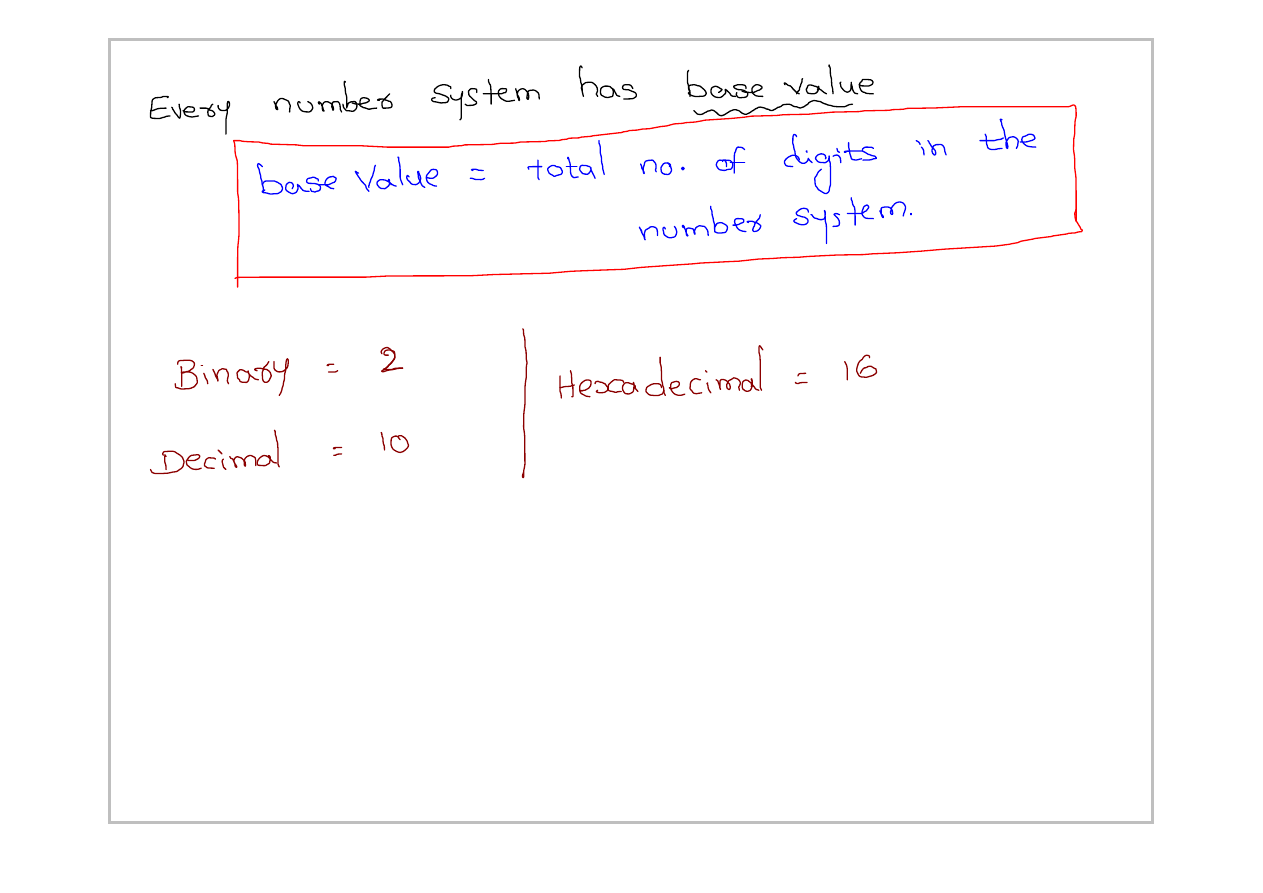 Every number system has base value
base Value = total no. of digits in the
number system.
Binary = 2
Decimal = 10
Hexadecimal = 16